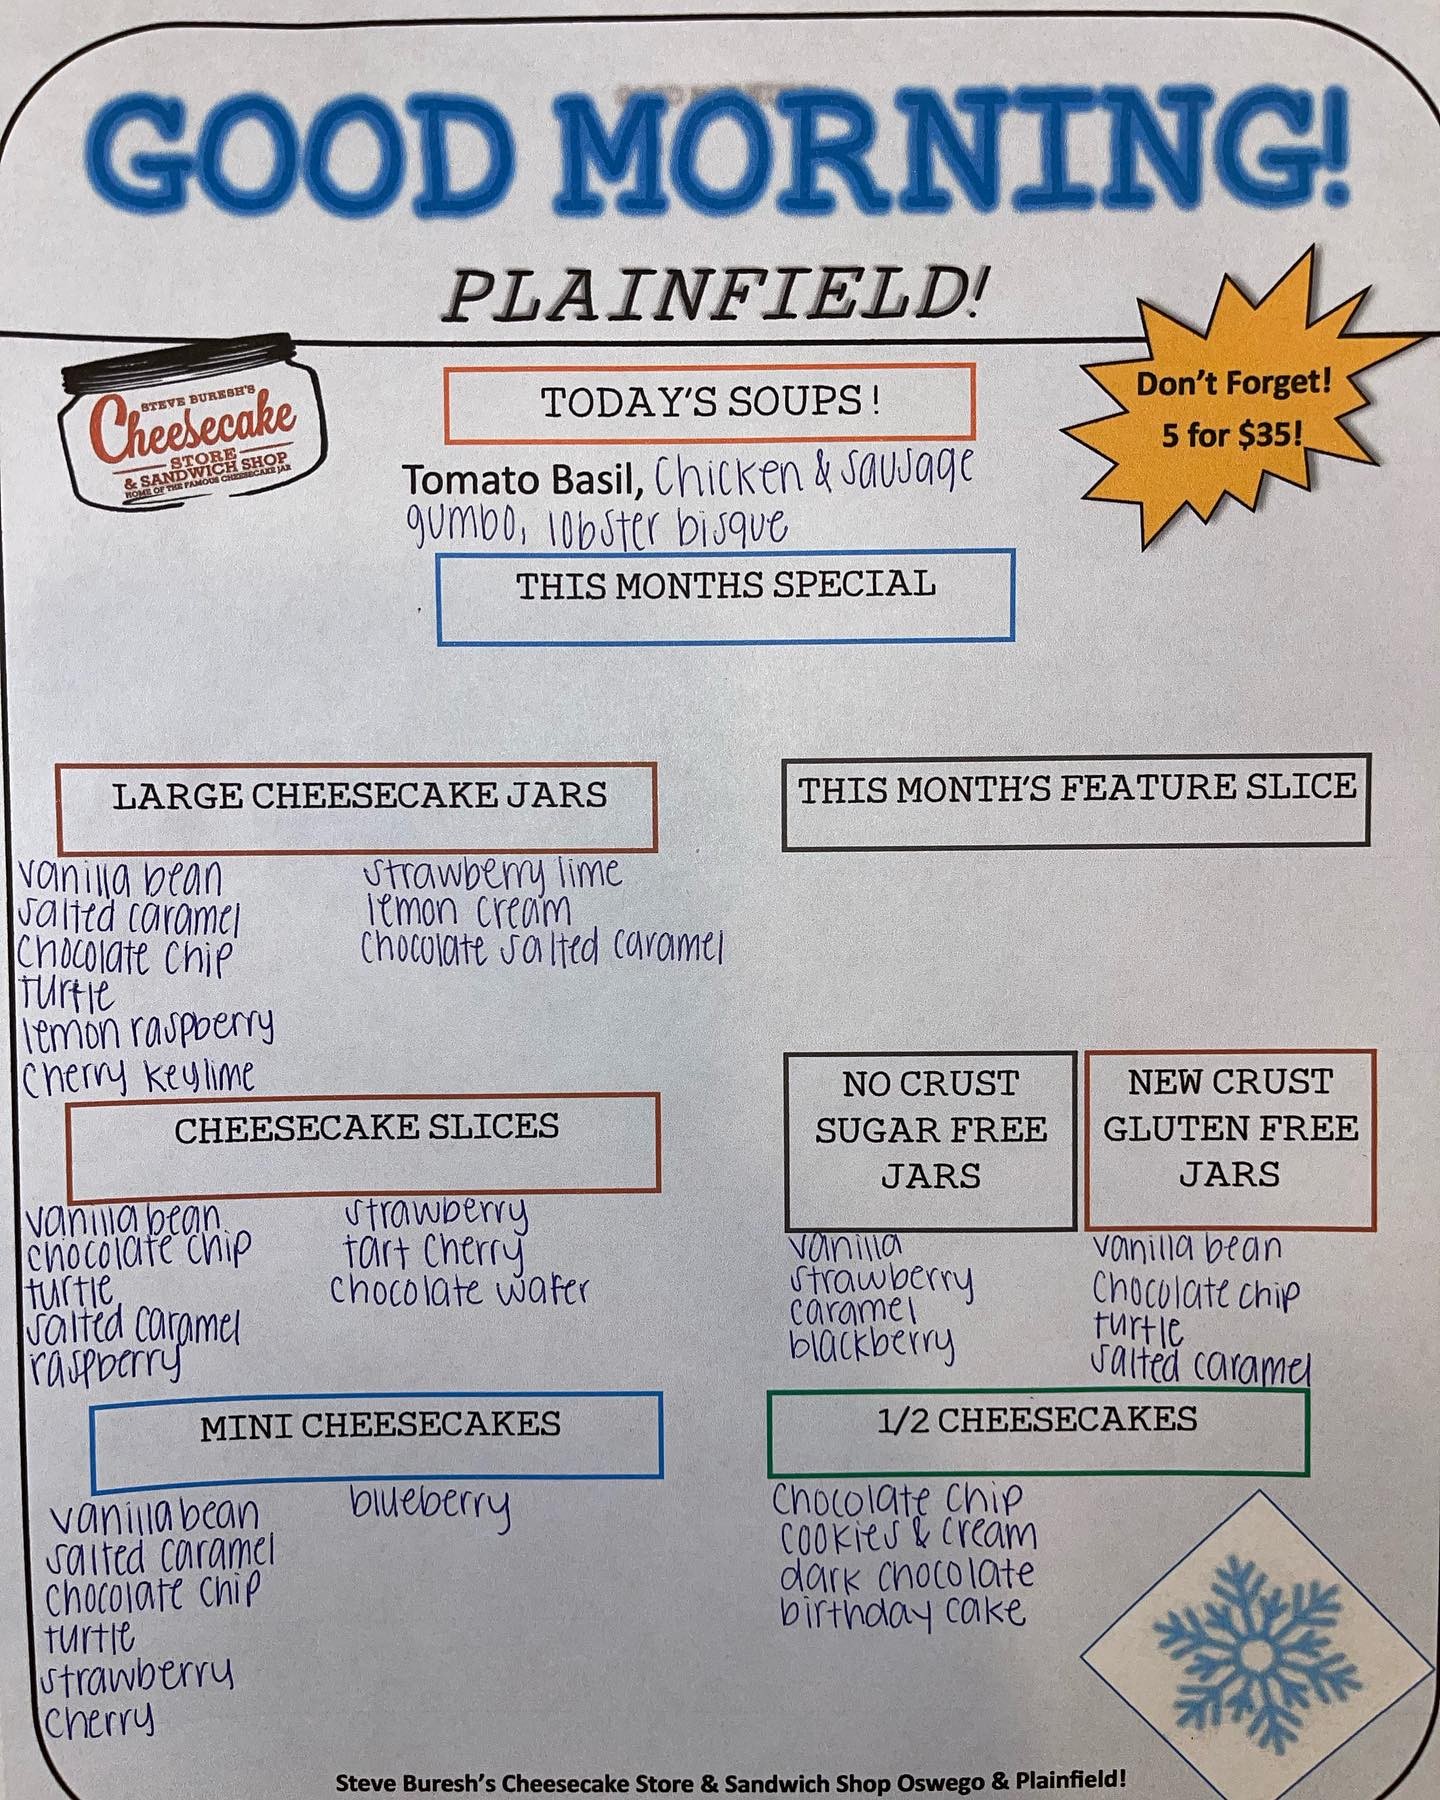 GOOD MORNING!
PLAINFIELD!
STEVE BURESH'S
Cheesecake
STORE
& SANDWICH SHOP
HOME OF THE FAMOUS CHEESECAKE JAR
Don't Forget!
5 for $35!
TODAY'S SOUPS!
Tomato Basil, Chicken & sausage
gumbo, lobster bisque
THIS MONTHS SPECIAL
LARGE CHEESECAKE JARS
vanilla bean
salted caramel
chocolate chip
turtle
lemon raspberry
cherry keylime
strawberry lime
lemon cream
chocolate salted caramel
THIS MONTH'S FEATURE SLICE
CHEESECAKE SLICES
vanilla bean
chocolate chip
turtle
salted caramel
raspberry
strawberry
tart cherry
chocolate wafer
NO CRUST
SUGAR FREE
JARS
vanilla
strawberry
caramel
blackberry
NEW CRUST
GLUTEN FREE
JARS
vanilla bean
chocolate chip
turtle
salted caramel
MINI CHEESECAKES
vanilla bean
salted caramel
chocolate chip
turtle
strawberry
cherry
blueberry
1/2 CHEESECAKES
chocolate chip
cookies & cream
dark chocolate
birthday cake
Steve Buresh's Cheesecake Store & Sandwich Shop Oswego & Plainfield!